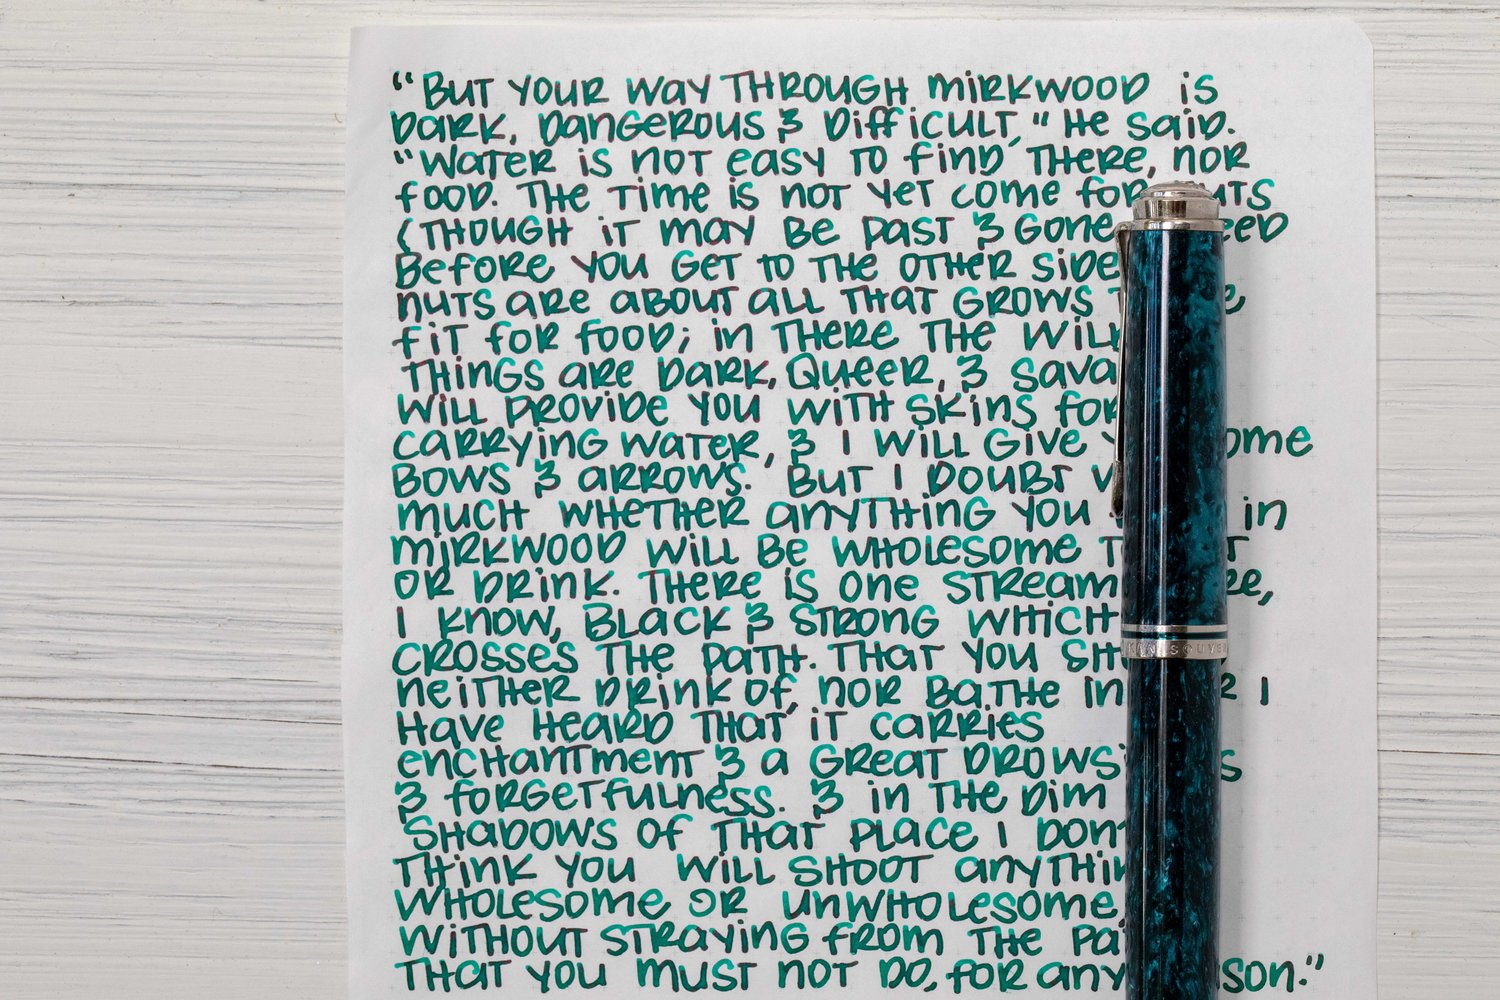 "But your way through Mirkwood is
dark, dangerous & difficult," he said.
"Water is not easy to find there, nor
food. The time is not yet come for
(though it may be past & gone
before you get to the other side
nuts are about all that grows
fit for food; in there the
things are dark, queer, &
will provide you with skins for
carrying water, & I will give
bows & arrows. But I doubt
much whether anything you in
Mirkwood will be wholesome
or drink. There is one stream
I know, black & strong which
crosses the path. That you
neither drink of, nor bathe in I
have heard that it carries
enchantment & a great
& forgetfulness. & in the dim
shadows of that place I
think you will shoot
wholesome or unwholesome,
without straying from the
that you must not do, for any
SOUVER